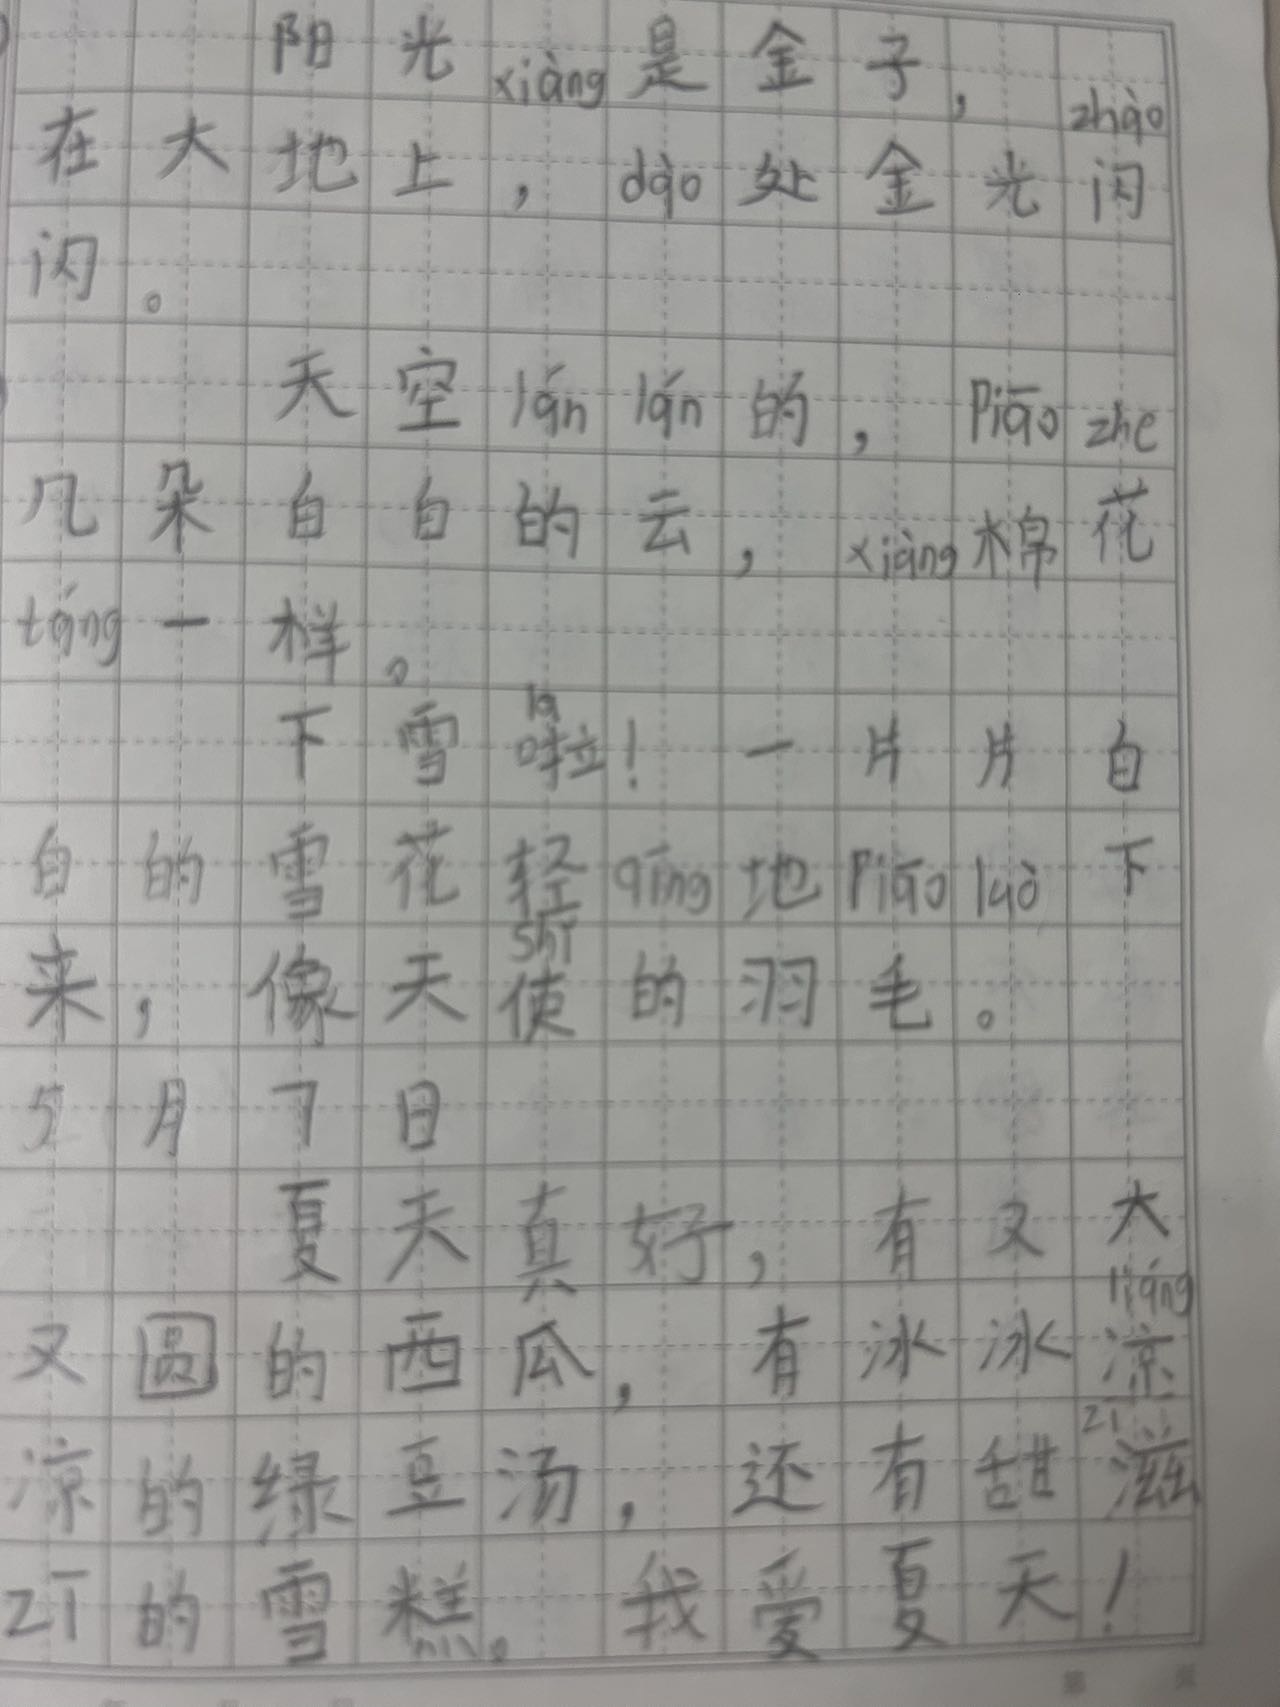 阳光xiàng是金子，zhào
在大地上，dào处金光闪
闪。
天空lán lán的，Piāo zhe
几朵白白的云，xiàng棉花
táng一样。
la
下雪啦！一片片白
白的雪花轻qīng地Piāo luò下
shǐ
来，像天使的羽毛。
5月7日
夏天真好，有又大
liáng
又圆的西瓜，有冰冰凉
zī
凉的绿豆汤，还有甜滋
zī的雪糕。我爱夏天！